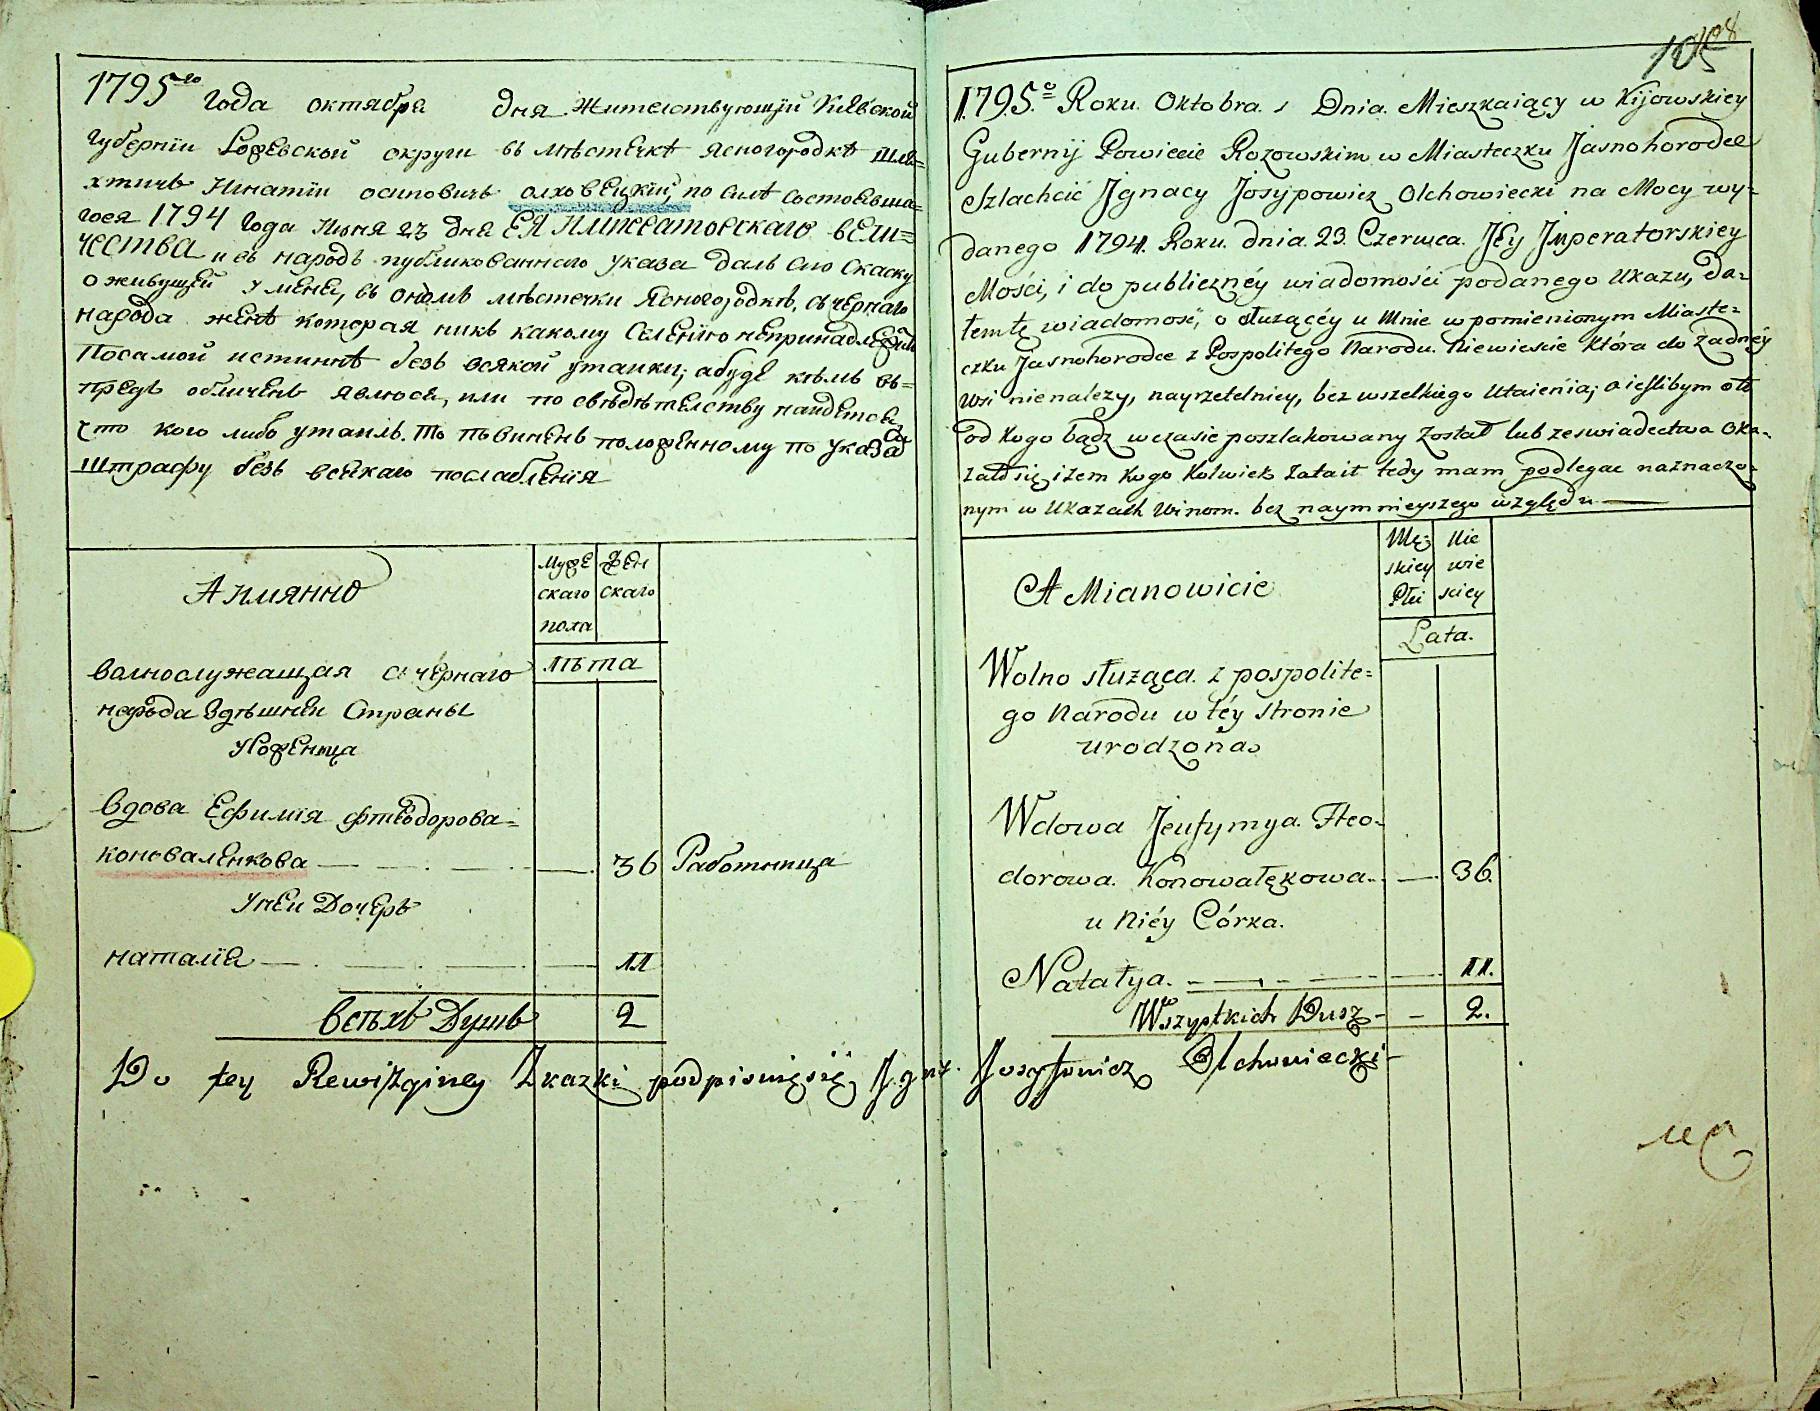 1795го года октября дня Жителствующiй Киевской
губернiи Рожевской округи въ мѣстечкѣ Ясногородкѣ шля=
хтичь Игнатiи осиповичь олховецкiй, по силѣ состоевша=
гося 1794 года Июня 23 дня ЕЯ ИМПЕРАТОРСКАГО ВЕЛИ=
ЧЕСТВА и въ народъ публикованнаго указа далъ сию скаску
о живущей у мене, въ ономъ мѣстечки Ясногородкѣ, съ чернаго
народа женѣ которая никъ какому селенiю непринадлежитъ
Посамой истиннѣ безъ всякой утаики; абуде кѣмъ въ=
предъ обличенъ явлюся, или по свѣдѣтелству найдется
что кого либо утаилъ. то повиненъ положенному по указа
штрафу безъ всякаго послабленiя
Аимянно
муже скаго пола
жен скаго
лѣта
волнослужащая съ чернаго
народа здѣшнеи страны
уроженица
вдова Ефимiя фтеодорова=
коноваленкова 36 Работница
унеи Дочерь
наталiя 11
всѣхъ Душъ 2
105
108
1795о Roku. Oktobra. Dnia. Mieszkaiący w Kijowskiey
Gubernij Powiecie Rozowskim w Miasteczku Jasnohorodce
Szlachcic Jgnacy Josypowicz Olchowiecki na Mocy wy=
danego 1794. Roku. dnia. 23. Czerwca. Jéy Jmperatorskiey
Mości, i do publicznéy wiadomości podanego Ukazu, da=
łemtę wiadomość, o służącéy u Mnie w pomienionym Miaste=
czku Jasnohorodce z Pospolitego Narodu. Niewieście która do żadnéy
Wsi nienależy, nayrzetelniey, bez wszelkiego Utaienia; a ieslibym oto
od kogo bądz wczasie poszlakowany został lub zeswiadectwa oka=
załosię iżem kogo kolwiek zataił tedy mam podlegac naznaczo=
nym w Ukazach Winom. bez naymnieyszego względu
A Mianowicie
Mę= skiey Płci
Nie wie sciey
Lata.
Wolno służąca. z pospolite=
go Narodu w téy stronie
urodzona
Wdowa Jeufymya. Fteo=
dorowa. Konowałękowa 36.
u Niéy Córka.
Natałya. 11.
Wszystkich Dusz 2.
Do tey Rewizyiney Skazki podpisuięsię Jgna. Josypowicz Olchowiecki